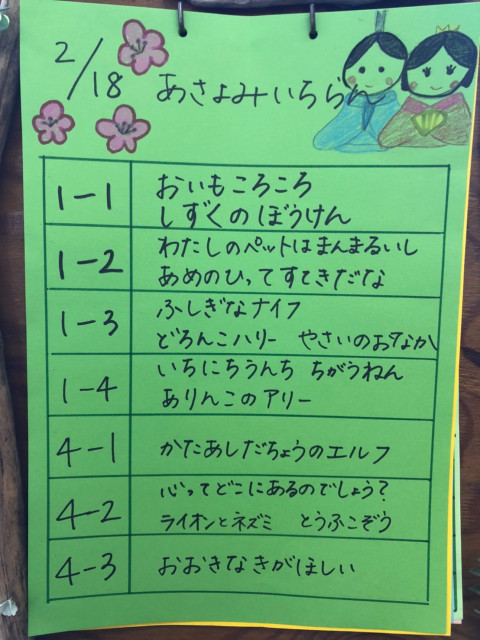 2/18
あさよみいちらん
1-1
おいもころころ
しずくのぼうけん
1-2
わたしのペットはまんまるいし
あめのひってすてきだな
1-3
ふしぎなナイフ
どろんこハリー やさいのおなか
1-4
いちにちうんち ちがうねん
ありんこのアリー
4-1
かたあしだちょうのエルフ
4-2
心ってどこにあるのでしょう?
ライオンとネズミ とうふこぞう
4-3
おおきなきがほしい